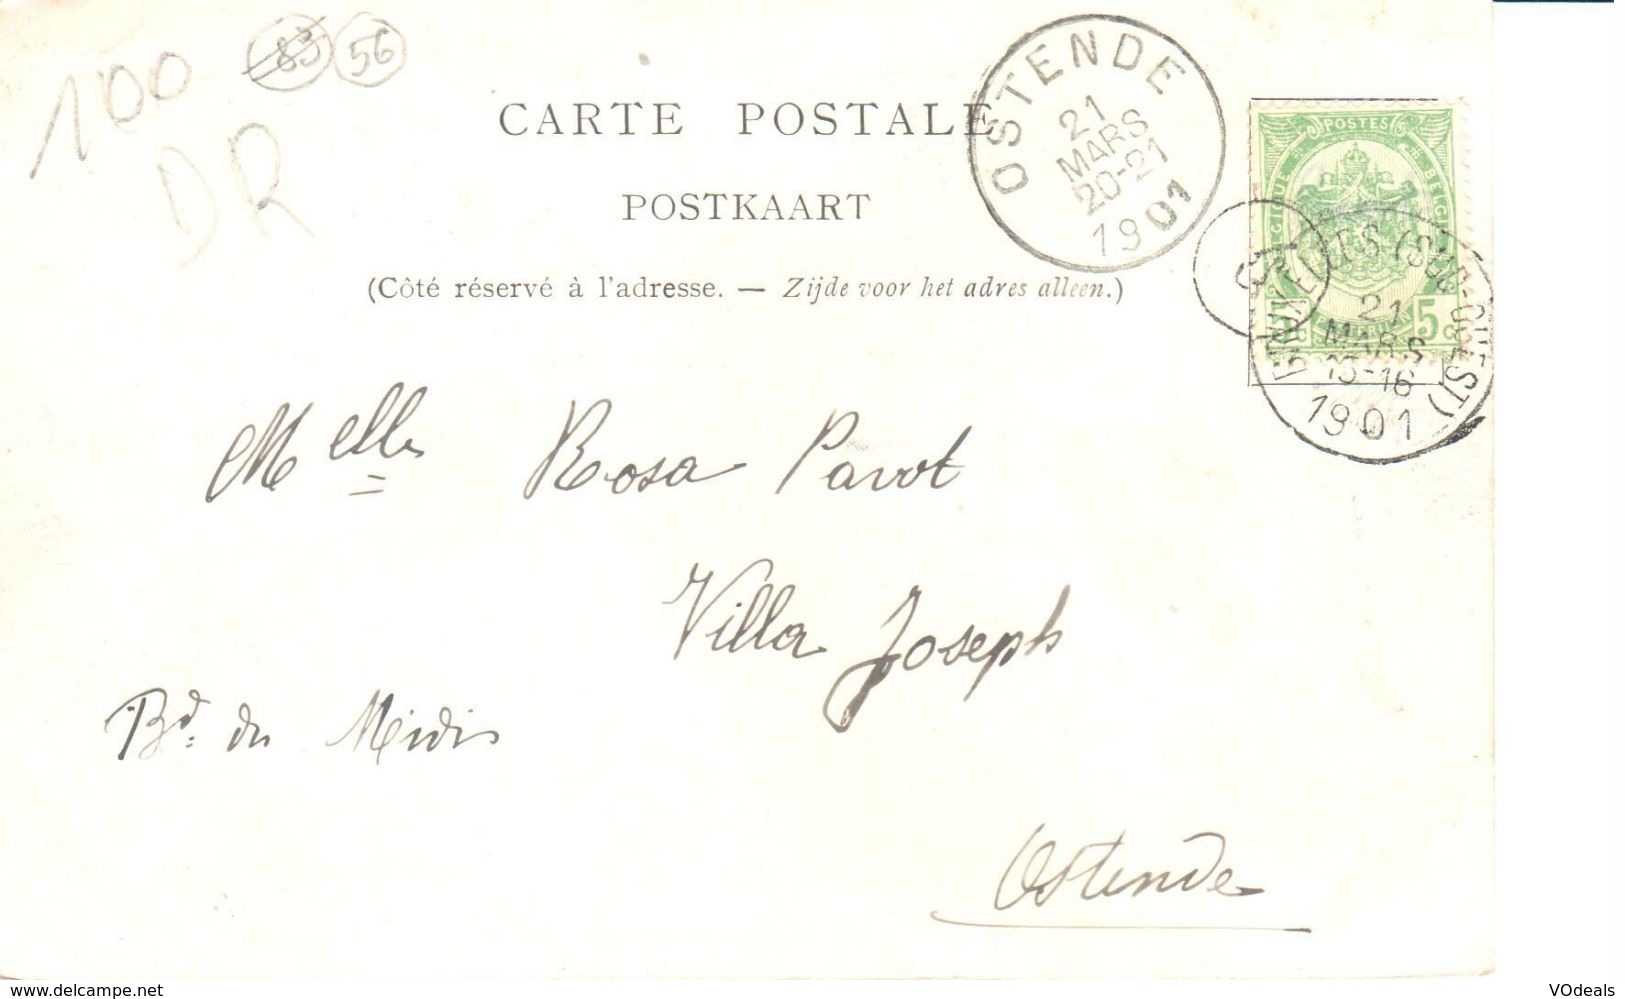 100
83 56
DR
CARTE POSTALE
POSTKAART
(Côté réservé à l'adresse. — Zijde voor het adres alleen.)
OSTENDE
21
MARS
20-21
1901
POSTES
BELGIQUE BELGIE
5 c
BRUXELLES (SUD-OUEST)
21
MARS
15-16
1901
Melle Rosa Pavot
Villa Joseph
Bd. du Midi
Ostende
www.delcampe.net
VOdeals